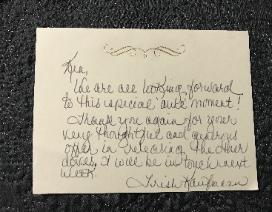 We are all looking forward
to this special moment!
Thank you again for your
very thoughtful and generous
offer in releasing the other
doves. I will be in touch next
week.
Trish Kaufmann